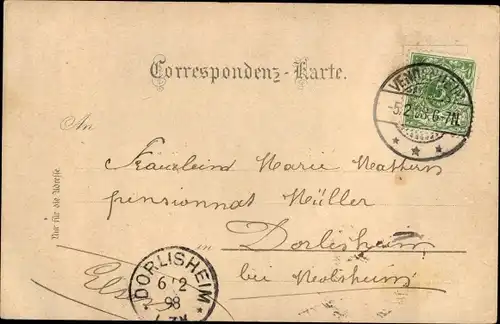 Correspondenz-Karte.
5
-5.2.98.6-7N.
An
Fräulein Marie Mathern
pensionnat Müller
in
Dorlisheim
bei Molsheim
Els
Nur für die Adresse.
DORLISHEIM
6 2
98